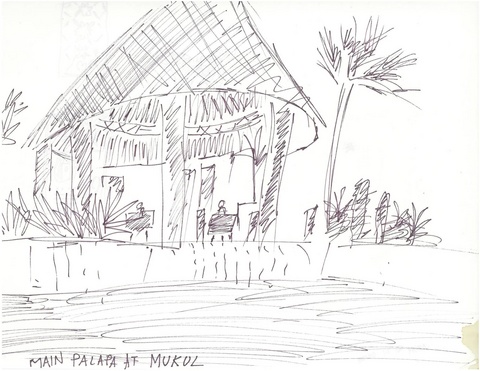 MAIN PALAPA AT MUKUL